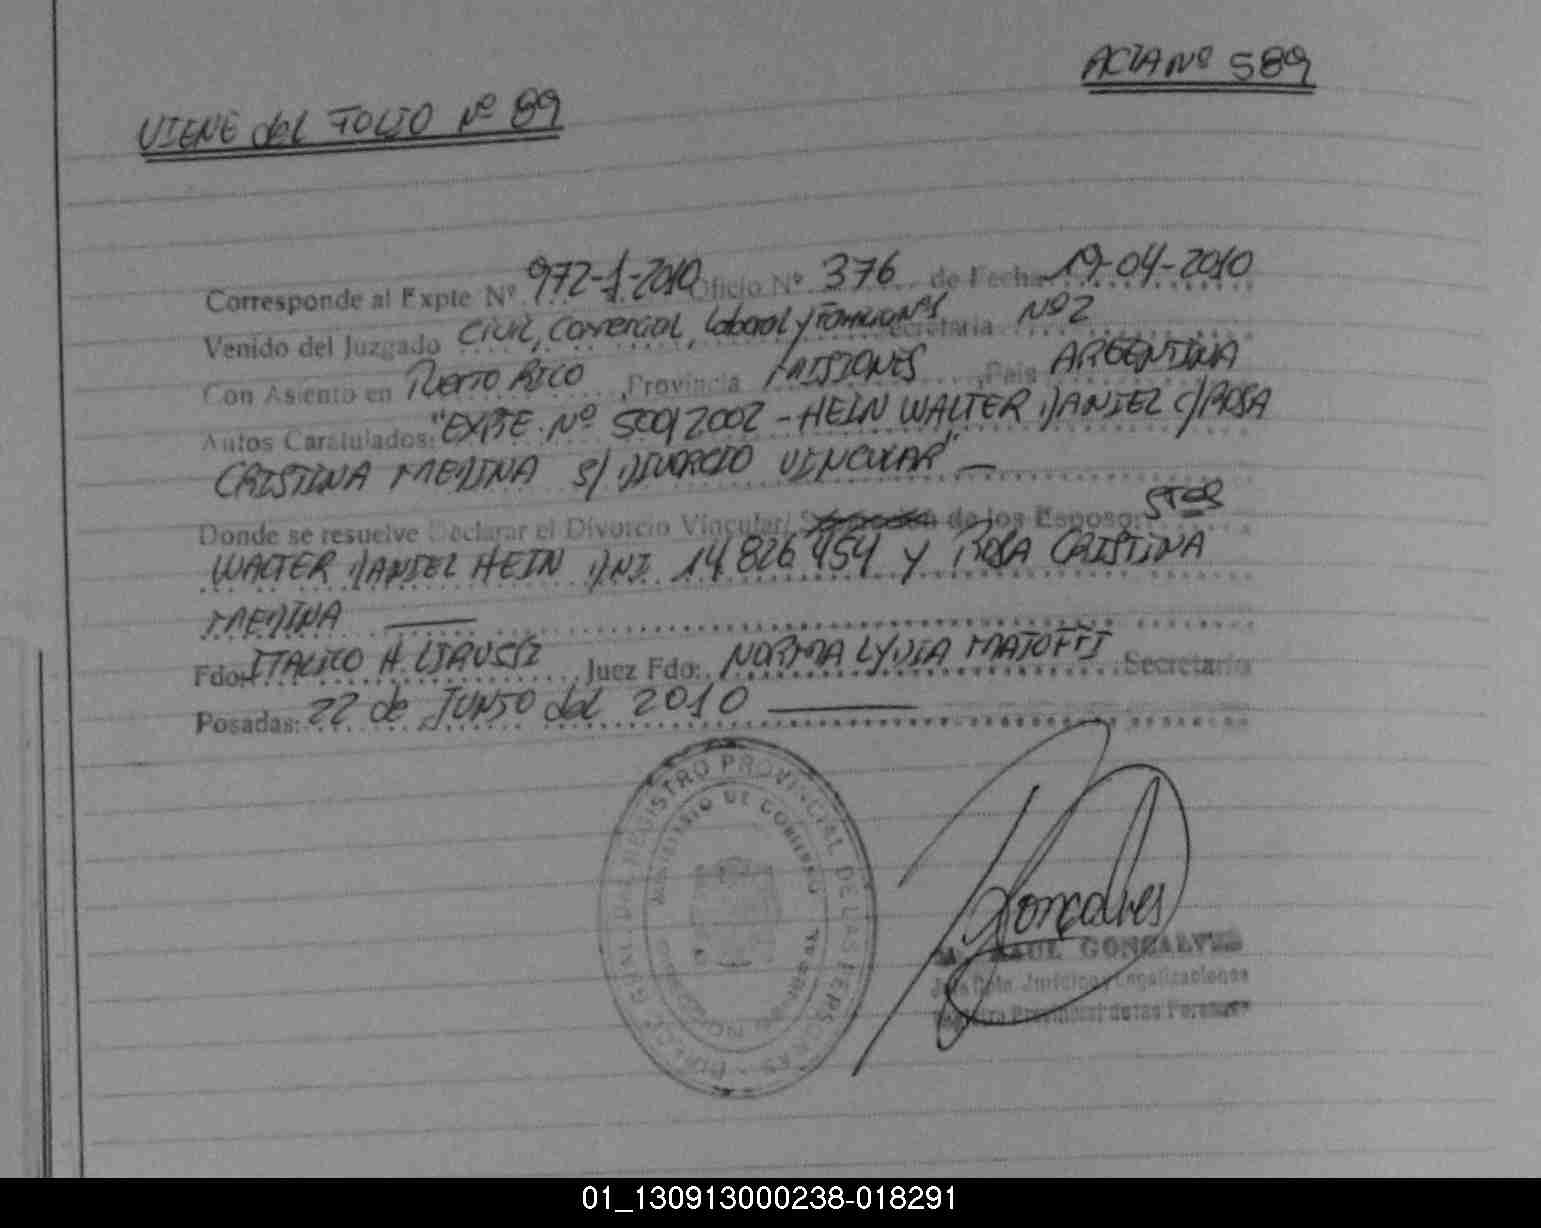 ACTA Nº 589
VIENE del FOLIO Nº 89
Corresponde al Expte Nº 972-1-2010 Oficio Nº 376 de Fecha 19-04-2010
Venido del Juzgado Civil, Comercial, Laboral y Familia Nº1 Secretaria Nº 2
Con Asiento en Puerto Rico, Provincia MISIONES, Pais ARGENTINA
Autos Caratulados: "EXPTE. Nº 500/2002 - HEIN WALTER DANIEL C/ ROSA
CRISTINA MEDINA S/ DIVORCIO VINCULAR" —
Donde se resuelve Declarar el Divorcio Vincular/ de los Esposos:
WALTER DANIEL HEIN DNI. 14 826 454 y ROSA CRISTINA
MEDINA —
Fdo: ITALICO A. Juez Fdo: NORMA LYDIA Secretario
Posadas: 22 de JUNIO del 2010 —
REGISTRO PROVINCIAL DE LAS PERSONAS
MINISTERIO DE GOBIERNO
Gonçalves
RAUL GONSALVES
Jefe Dpto. Jurídico y Legalizaciones
Registro Provincial de las Personas
01_130913000238-018291